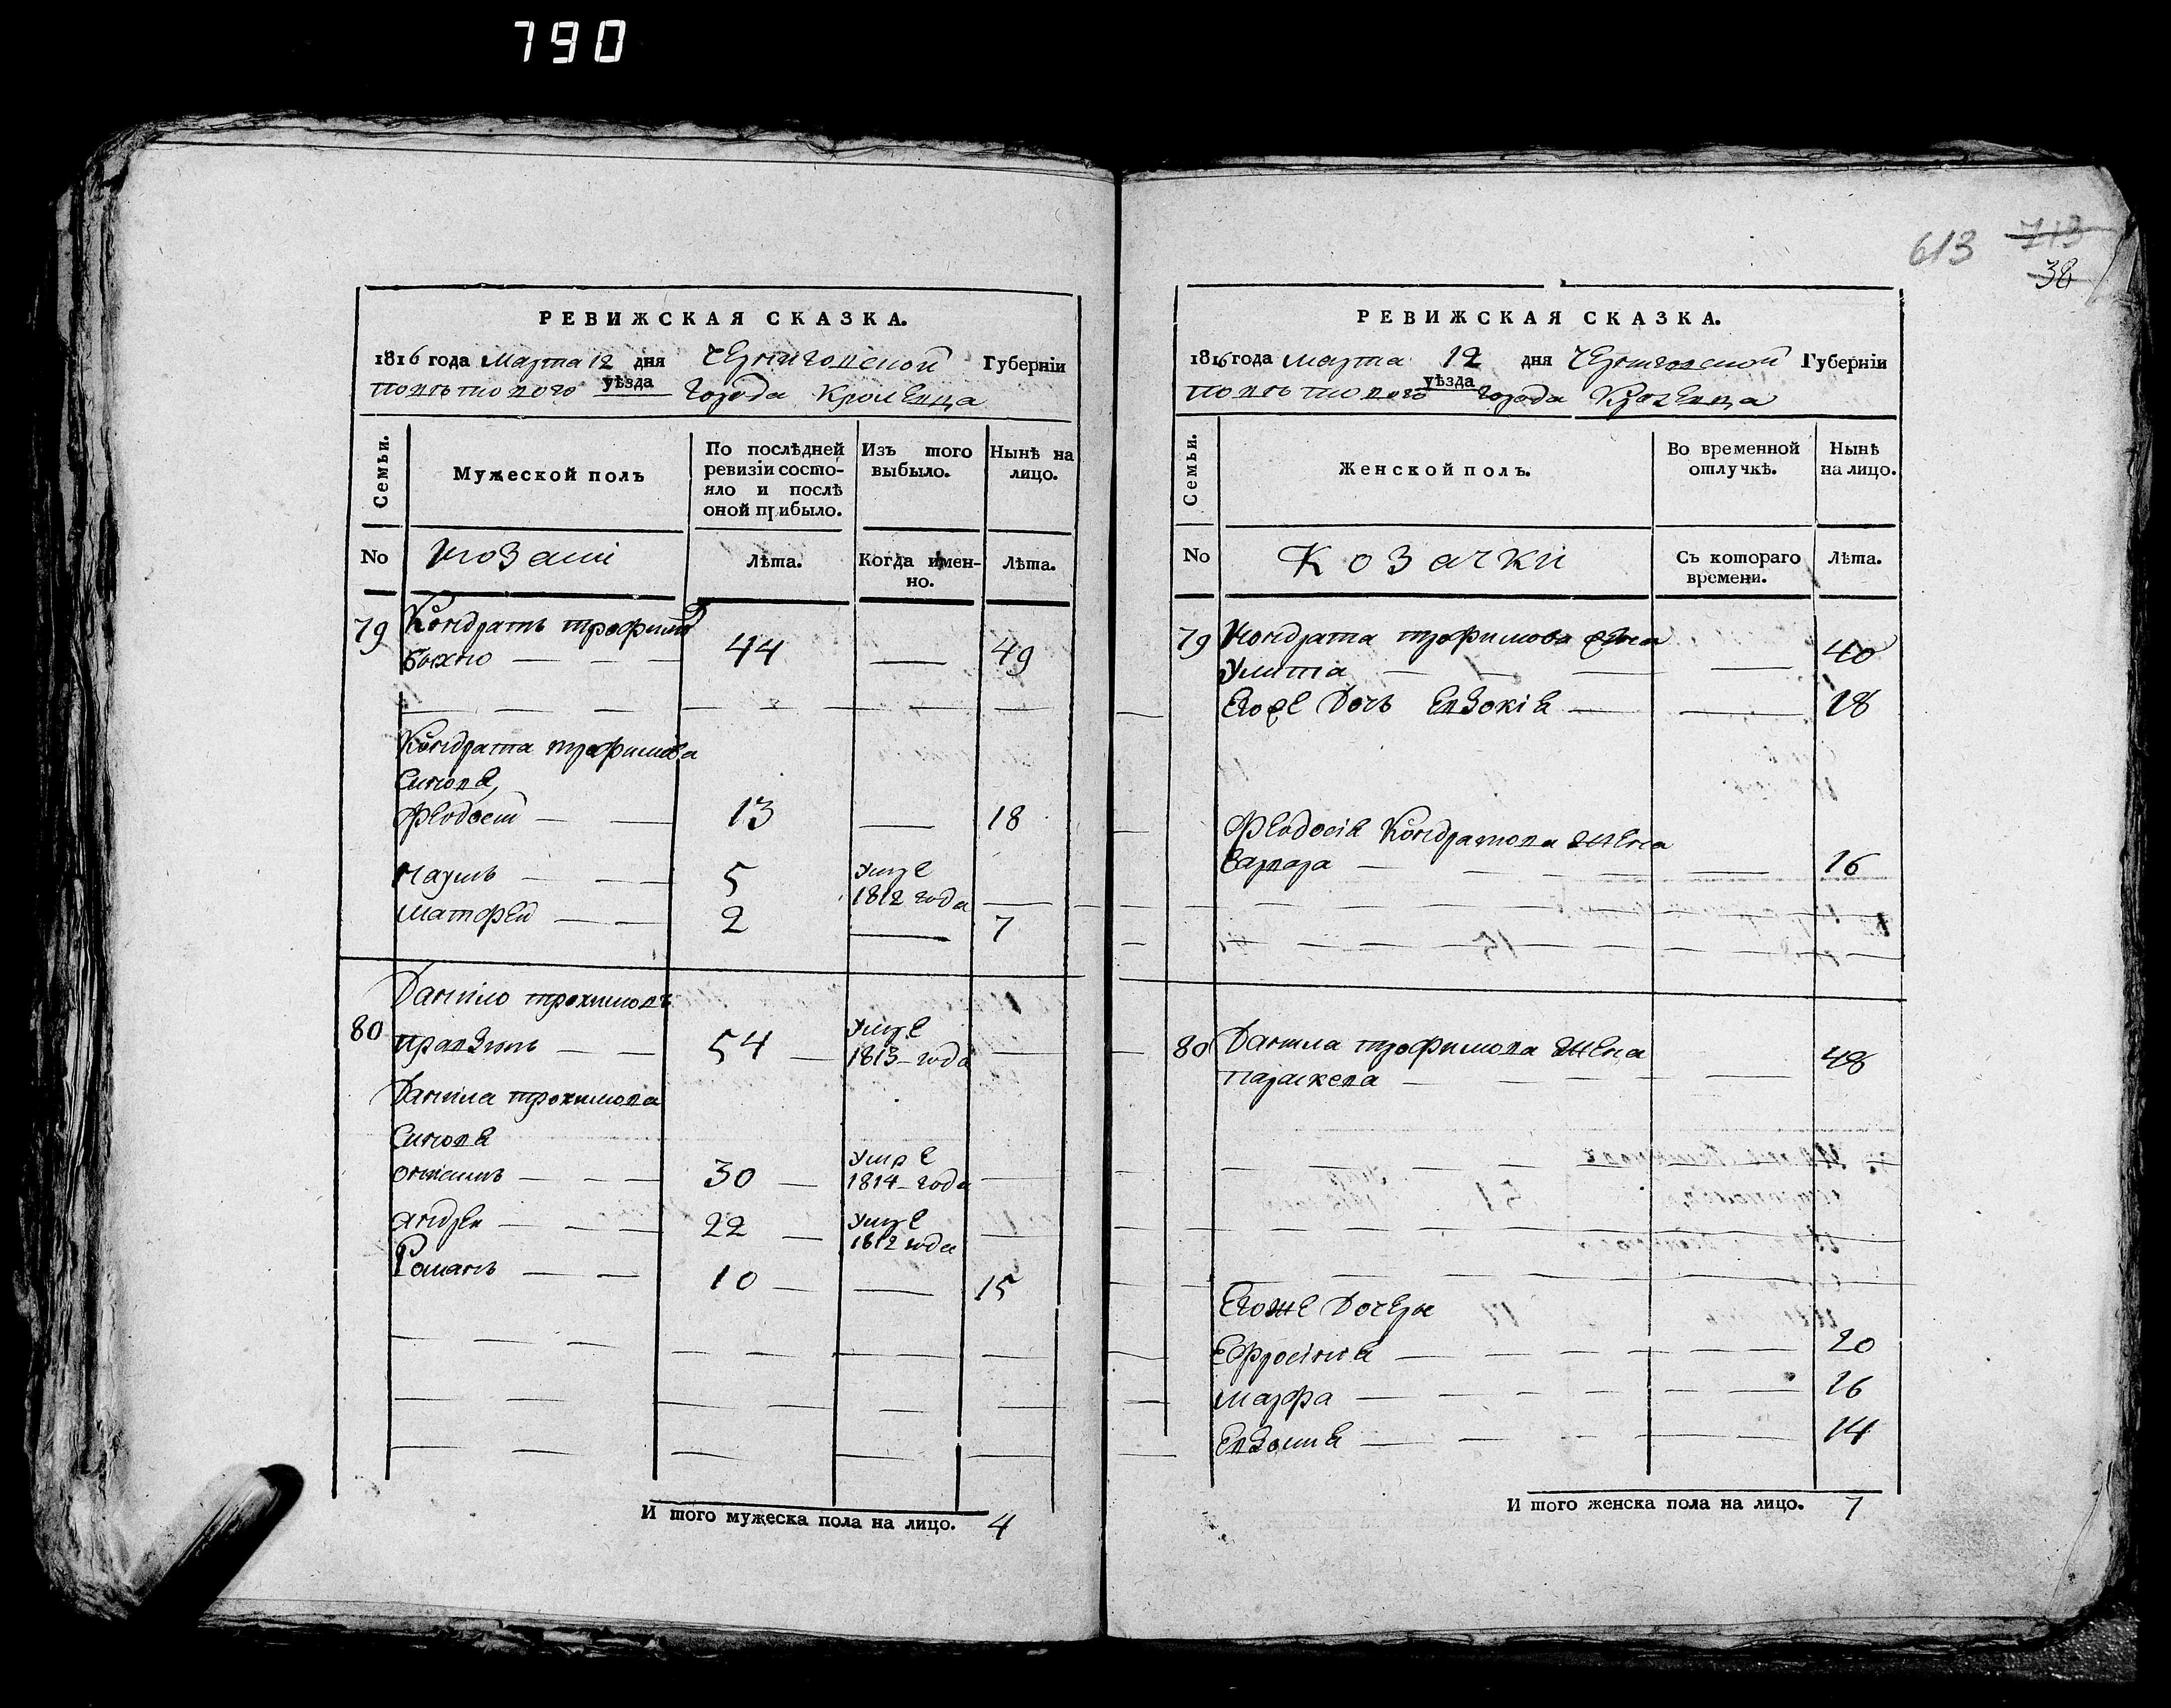 790
613 713
38
РЕВИЖСКАЯ СКАЗКА.
1816 года Марта 12 дня Черниговской Губерніи
Поветового уѣзда Города Кролевца
Семьи.
Мужеской полъ
По послѣдней ревизіи состо-
яло и послѣ
оной прибыло.
Изъ того
выбыло.
Нынѣ на
лицо.
No Козаки Лѣта. Когда имен-
но. Лѣта.
79 Кондратъ трофимов
44 — 49
Кондрата трофимова
Синовя,
Феодосій — — 13 — 18
Наумъ — — 5 Умре
1812 года —
Матфей — — 2 — 7
Данило трохимовъ
80 — — 54 — Умре
1813 года —
Данила трохимова
Синовя
Онисимъ — — — 30 — Умре
1814 года —
Андрей — — 22 — Умре
1812 года —
Романъ — — 10 — — 15
И того мужеска пола на лицо. 4
РЕВИЖСКАЯ СКАЗКА.
1816 года Марта 12 дня Черниговской Губерніи
Поветового уѣзда Города Кролевца
Семьи.
Женской полъ.
Во временной
отлучкѣ.
Нынѣ
на лицо.
No Козачки Съ котораго
времени. Лѣта.
79 Кондрата трофимова жена
Улита — — — — 40
Егоже Дочъ Евдокія — — 18
Феодосія Кондратова жена
Варвара — — — — 16
80 Данила трофимова жена
Параскева — — — — 48
Егоже Дочеры
Ефросинія — — — — 20
Марфа — — — — 16
— — — — 14
И того женска пола на лицо. 7